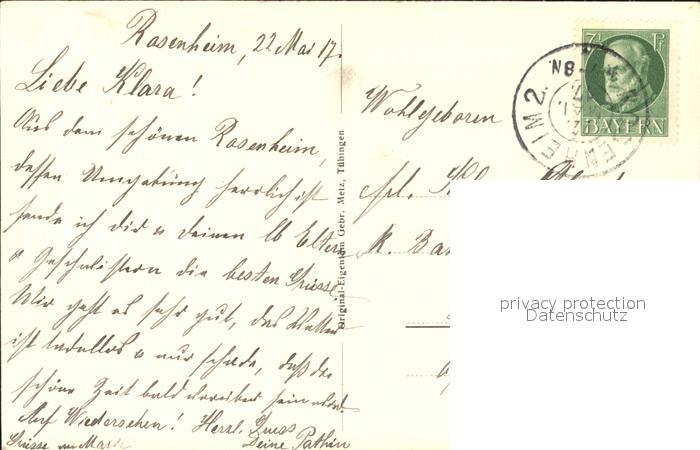 Rosenheim, 22 Mai 17.
Liebe Klara!
Aus dem schönen Rosenheim,
dessen Umgebung herrlich ist
sende ich dir u deinen lb Eltern
u Geschwistern die besten Grüsse.
Mir geht es sehr gut, das Wetter
ist tadellos u nur schade, daß die
schöne Zeit bald vorüber sein wird.
Auf Wiedersehen! Herzl. Gruss
Deine Pathin
Grüsse an
Original-Eigentum Gebr. Metz, Tübingen
Wohlgeboren
Frl.
k.
7½ Pf
BAYERN
ROSENHEIM 2.
privacy protection
Datenschutz